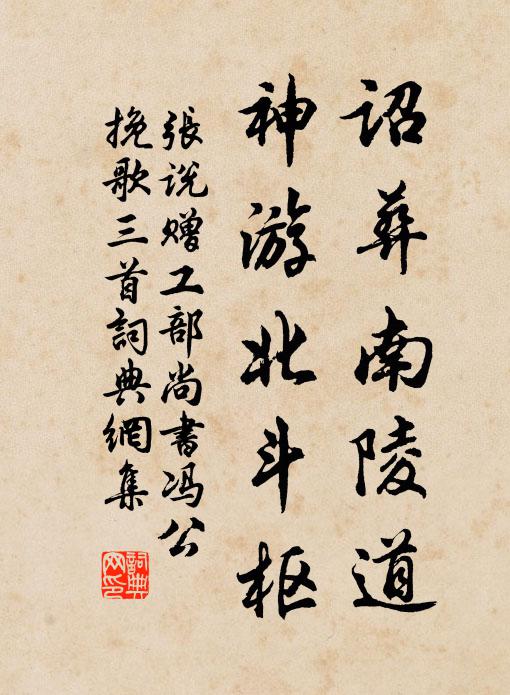 詔葬南陵道
神游北斗枢
張説贈工部尚書冯公
挽歌三首詞典網集
詞典网印